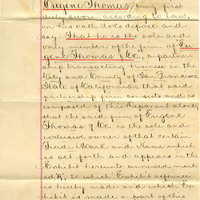 Eugene Thomas, being first
duly sworn according to law,
on his oath does depose and
say That he is the sole and
only member of the firm of Eu-
gene Thomas & Co., a partner-
ship transacting business in
the City and County of San Francisco
State of California that said
partnership firm and is
composed of this Deponent alone
that the said firm of Eugene
Thomas & Co. is the sole and
exclusive owner of that certain
Trade Mark and Name which
is set forth and appears in the
Exhibit hereto annexed mark-
ed A, to which Exhibit reference
is hereby made and which Ex-
hibit is made a part of this